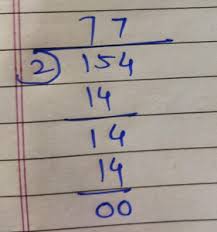 77
2) 154
14
14
14
00